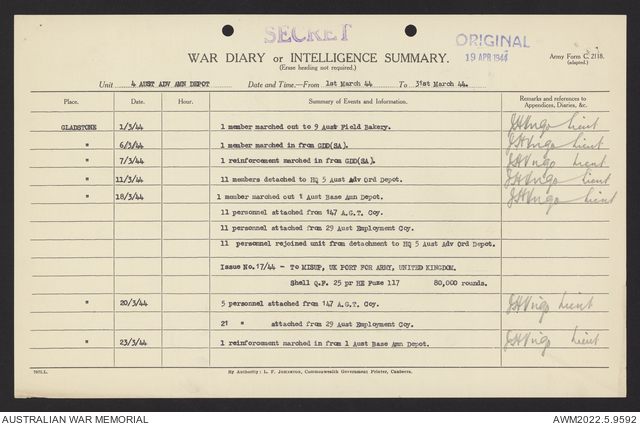 SECRET
ORIGINAL
19 APR 1944
WAR DIARY or INTELLIGENCE SUMMARY.
(Erase heading not required.)
Army Form C. 2118.
(adapted.)
Unit 4 AUST ADV AMN DEPOT Date and Time.—From 1st March 44 To 31st March 44.
Place. Date. Hour. Summary of Events and Information. Remarks and references to Appendices, Diaries, &c.
GLADSTONE 1/3/44 1 member marched out to 9 Aust Field Bakery. Lieut
" 6/3/44 1 member marched in from GDD(SA). Lieut
" 7/3/44 1 reinforcement marched in from GDD(SA). Lieut
" 11/3/44 11 members detached to HQ 5 Aust Adv Ord Depot. Lieut
" 18/3/44 1 member marched out 1 Aust Base Amn Depot. Lieut
11 personnel attached from 147 A.G.T. Coy.
11 personnel attached from 29 Aust Employment Coy.
11 personnel rejoined unit from detachment to HQ 5 Aust Adv Ord Depot.
Issue No.17/44 - To MISUP, UK PORT FOR ARMY, UNITED KINGDOM.
Shell Q.F. 25 pr HE Fuze 117 80,000 rounds.
" 20/3/44 5 personnel attached from 147 A.G.T. Coy. Lieut
21 " attached from 29 Aust Employment Coy.
" 23/3/44 1 reinforcement marched in from 1 Aust Base Amn Depot. Lieut
By Authority: L. F. Johnston, Commonwealth Government Printer, Canberra.
AUSTRALIAN WAR MEMORIAL AWM2022.5.9592